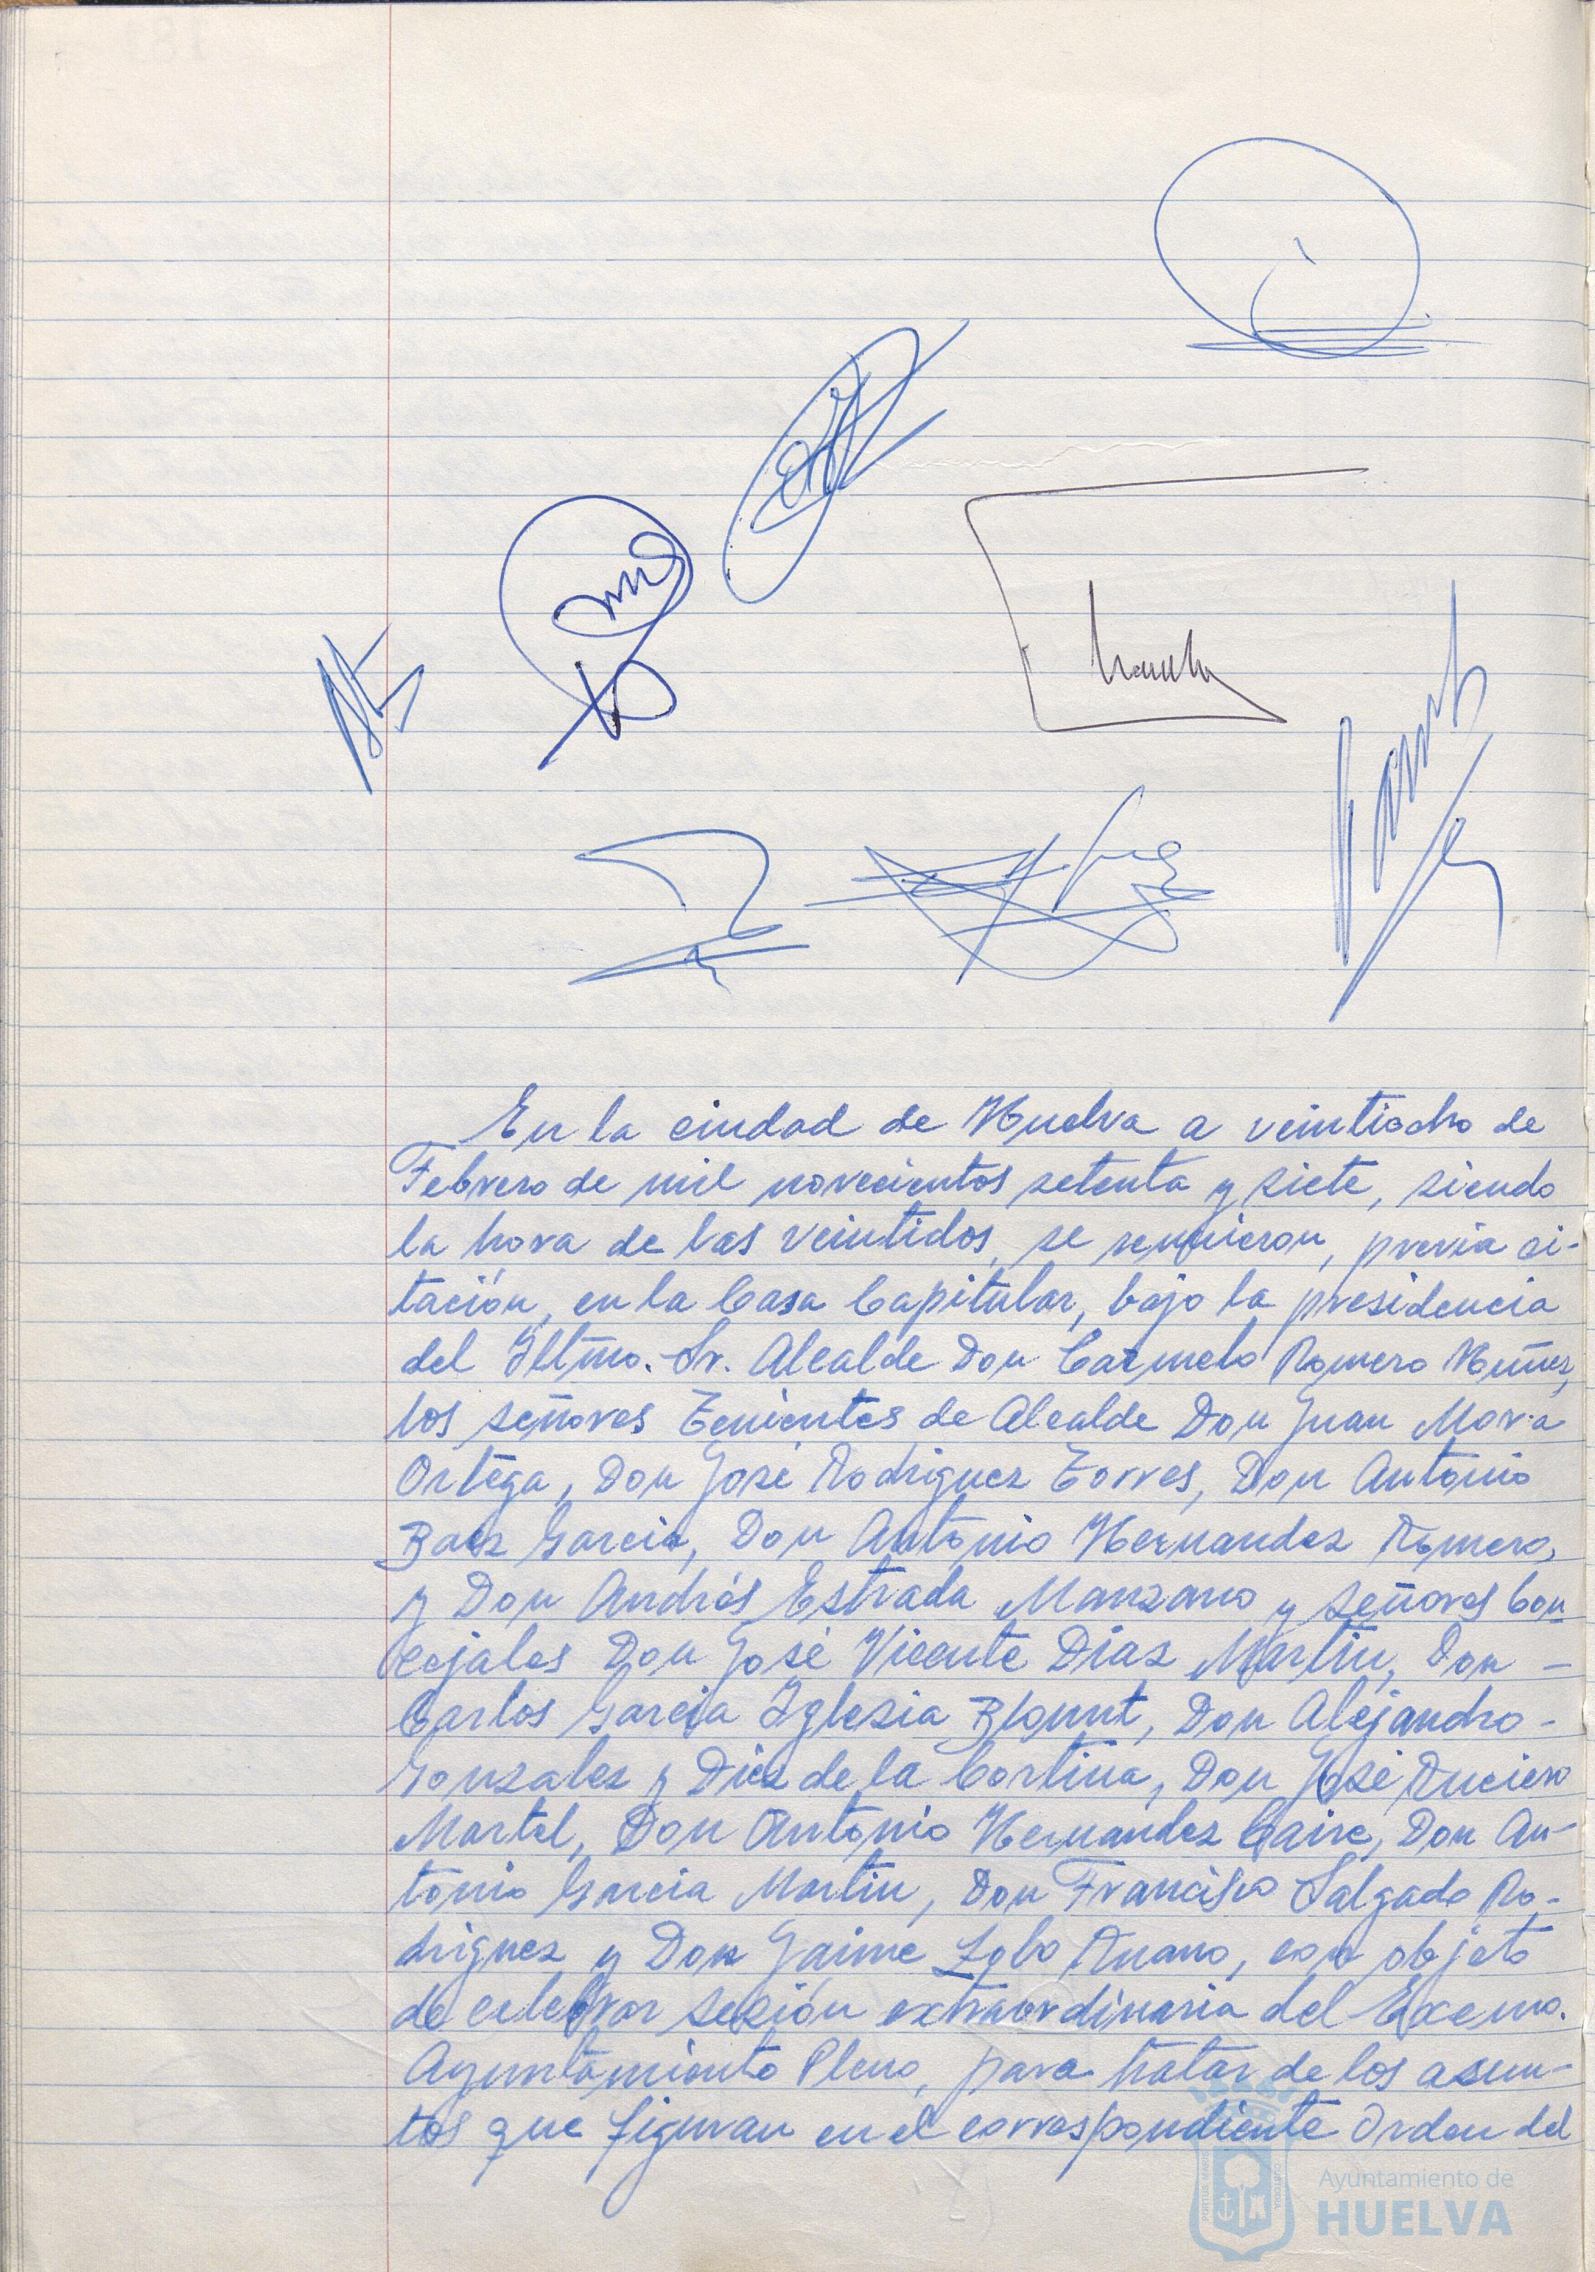 En la ciudad de Huelva a veintiocho de
Febrero de mil novecientos setenta y siete, siendo
la hora de las veintidos, se reunieron, previa ci-
tación, en la Casa Capitular, bajo la presidencia
del Iltmo. Sr. Alcalde Don Carmelo Romero Núñez,
los señores Tenientes de Alcalde Don Juan Mora
Ortega, Don José Rodriguez Torres, Don Antonio
Baez Garcia, Don Antonio Hernandez Romero,
y Don Andrés Estrada Manzano y señores Con
cejales Don José Vicente Diaz Martin, Don -
Carlos Garcia Iglesia Blount, Don Alejandro -
Gonzalez y Diez de la Cortina, Don José Ruciero
Martel, Don Antonio Hernandez Caire, Don An-
tonio Garcia Martin, Don Francisco Salgado Ro-
driguez y Don Jaime Lobo Ruano, con objeto
de celebrar sesión extraordinaria del Excmo.
Ayuntamiento Pleno, para tratar de los asun-
tos que figuran en el correspondiente Orden del
Ayuntamiento de
HUELVA